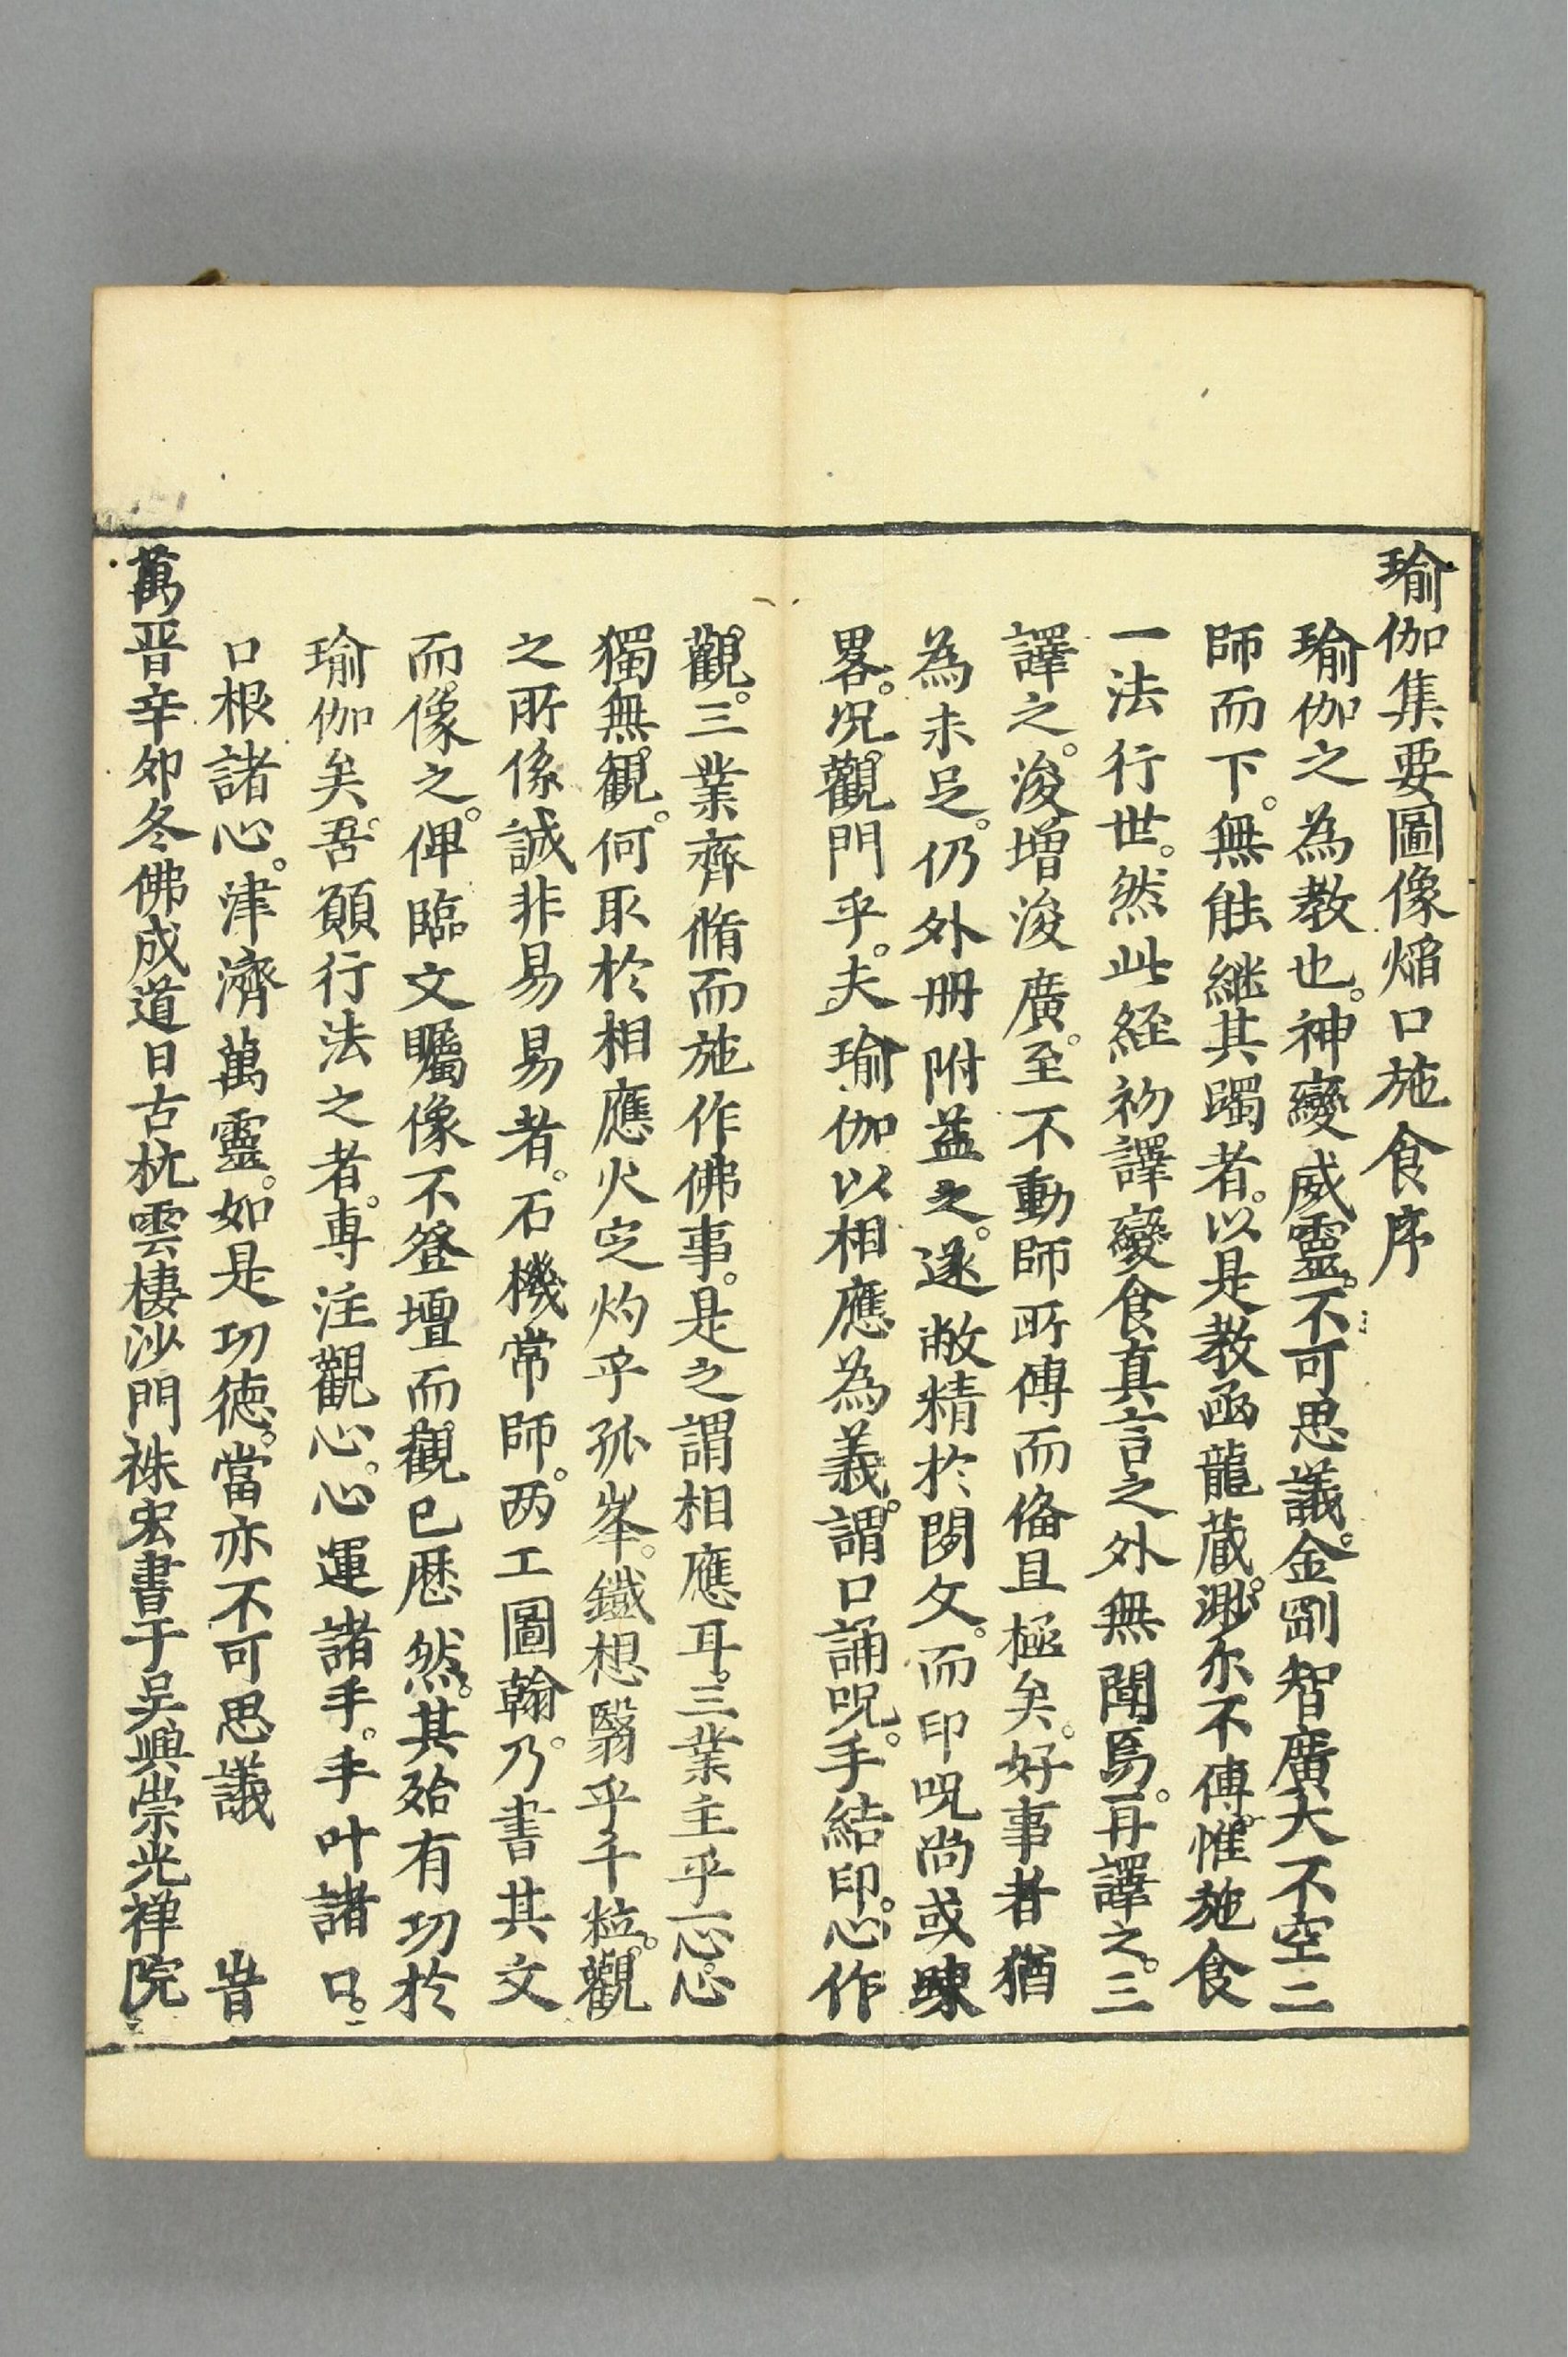 瑜伽集要圖像焰口施食序
瑜伽之為教也。神變威靈。不可思議。金剛智廣大不空二
師而下。無能継其躅者。以是教函龍蔵。渺尓不傳。惟施食
一法行世。然此経初譯變食真言之外無聞焉。再譯之。三
譯之。浚增浚廣。至不動師所傳而俻且極矣。好事者猶
為未足。仍外冊附益之。遂敝精於閱文。而印呪尚或疎
畧。况觀門乎。夫瑜伽以相應為義。謂口誦呪。手結印。心作
觀。三業齊脩而施作佛事。是之謂相應耳。三業主乎心。心
獨無觀。何取於相應火定灼乎孤峯。鐵想翳乎千粒。觀
之所係誠非易易者。石機常師。两工圖翰。乃書其文
而像之。俾臨文矚像不登壇而觀已歴然。其殆有功於
瑜伽矣。吾願行法之者。専注觀心。心運諸手。手叶諸口。
口根諸心。津濟萬靈。如是功徳。當亦不可思議　　　旹
萬晋辛卯冬佛成道日古杭雲棲沙門袾宏書于吴興崇光禅院